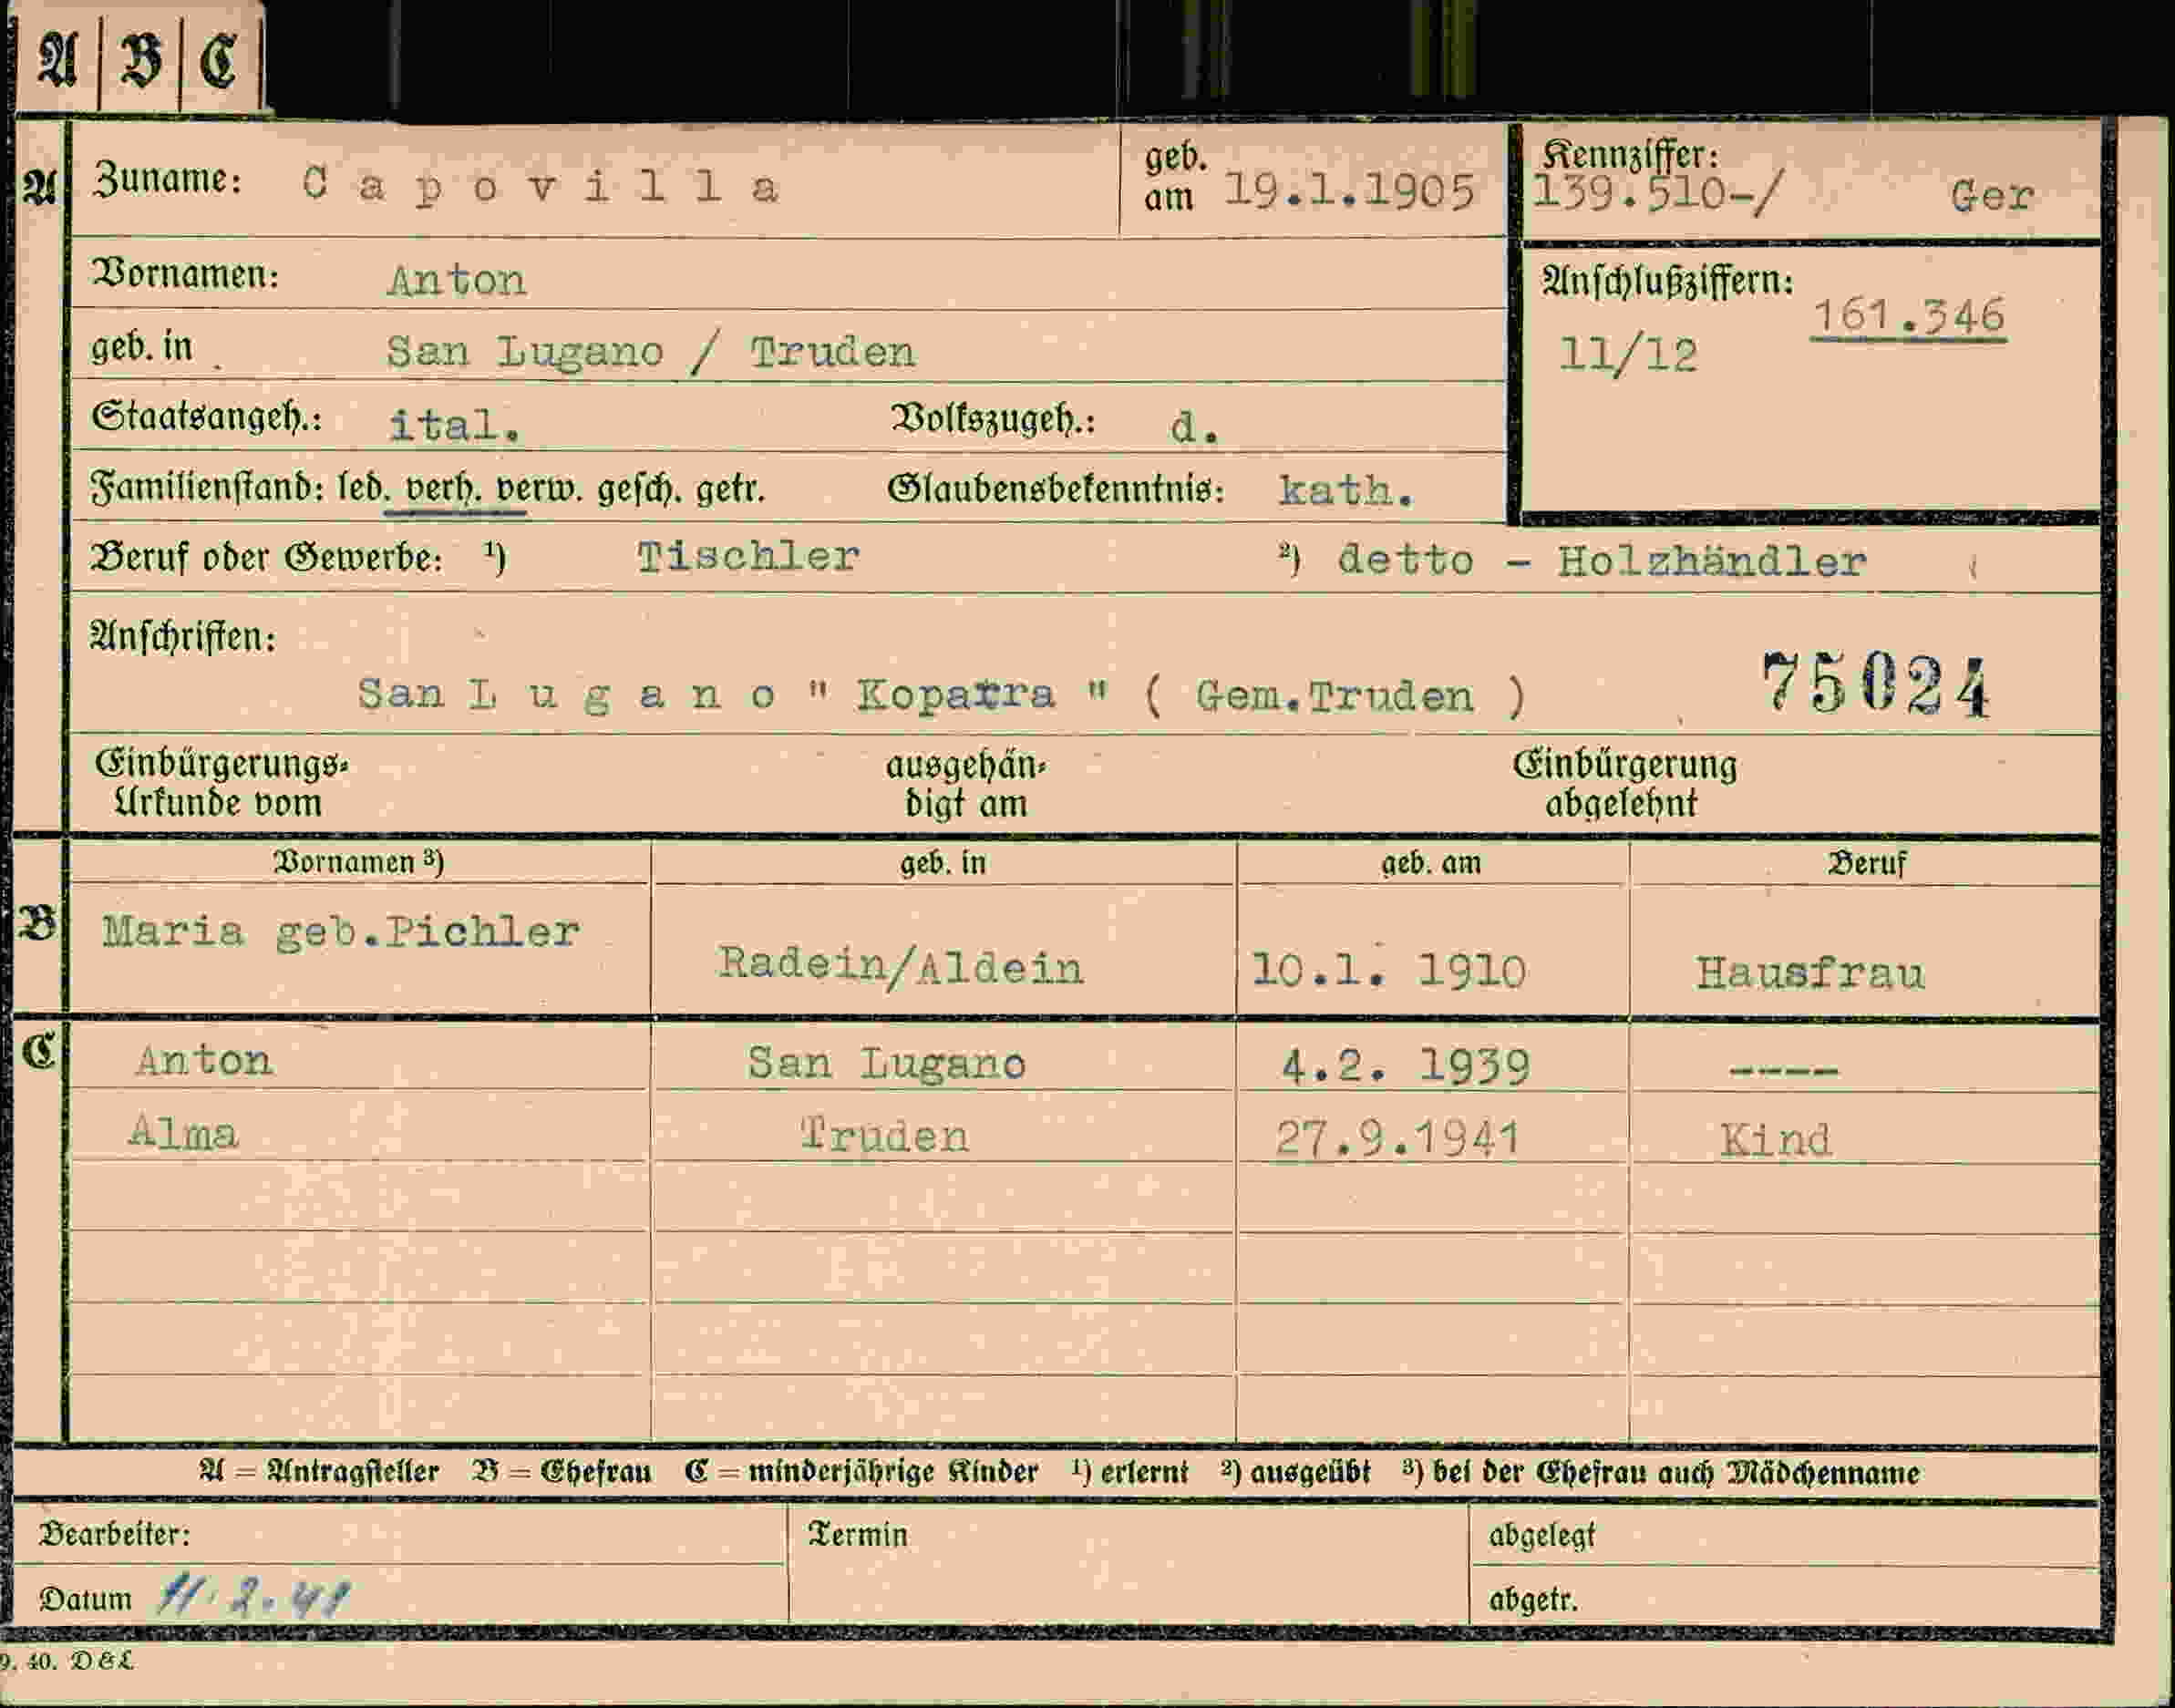 A B C
A Zuname: Capovilla geb. am 19.1.1905 Kennziffer: 139.510-/ Ger
Vornamen: Anton Anschlußziffern: 161.346
geb. in San Lugano / Truden 11/12
Staatsangeh.: ital. Volkszugeh.: d.
Familienstand: led. verh. verw. gesch. getr. Glaubensbekenntnis: kath.
Beruf oder Gewerbe: ¹) Tischler ²) detto - Holzhändler
Anschriften:
San Lugano " Kopatra " ( Gem.Truden ) 75024
Einbürgerungs- ausgehän- Einbürgerung
Urkunde vom digt am abgelehnt
Vornamen ³) geb. in geb. am Beruf
B Maria geb.Pichler Radein/Aldein 10.1. 1910 Hausfrau
C Anton San Lugano 4.2. 1939 ----
Alma Truden 27.9.1941 Kind
A = Antragsteller B = Ehefrau C = minderjährige Kinder ¹) erlernt ²) ausgeübt ³) bei der Ehefrau auch Mädchenname
Bearbeiter: Termin abgelegt
Datum 11.2.41 abgetr.
9. 40. D & L